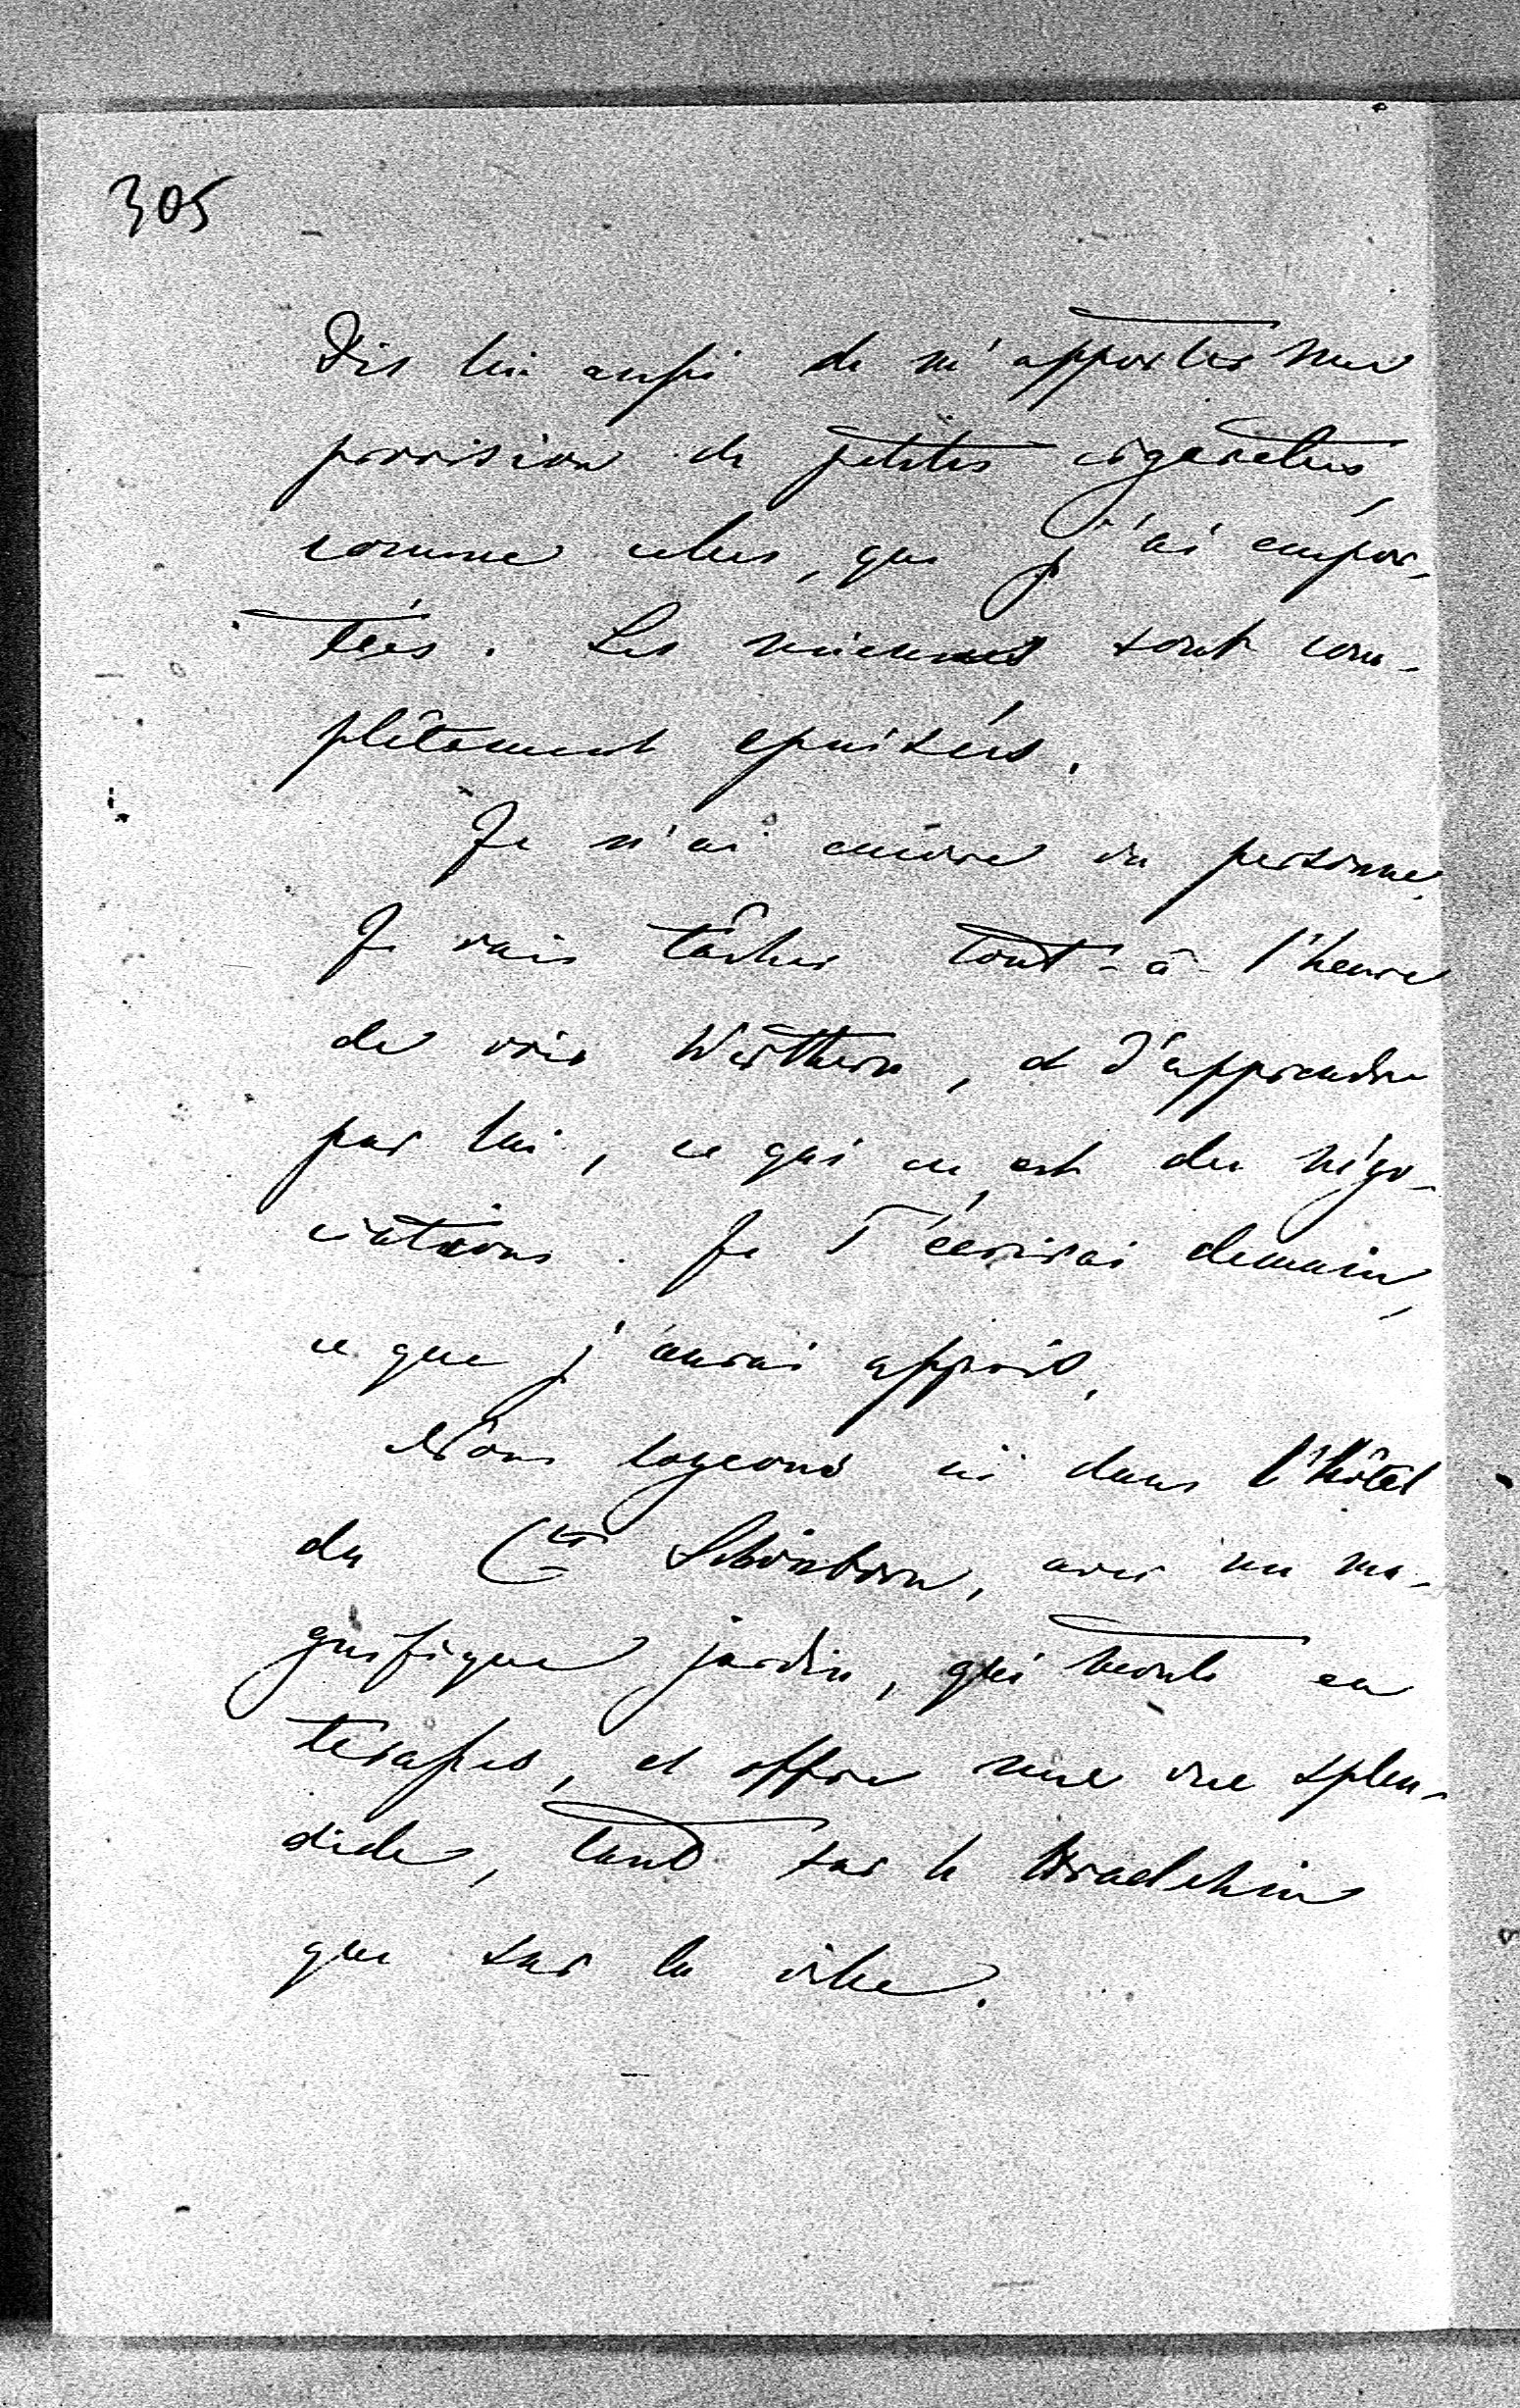 305
Dis lui aussi de m'apporter une
provision de petites cigarettes,
comme celles, que j'ai empor-
teés. Les miennes sont com-
plêtement epuisées.
Je n'ai encore vu personne.
Je vais tâcher tout-à-l'heure
de voir Werthern, et d'apprendre
par lui, ce qui en est des négo-
ciations. Je T'écrirai demain,
ce que j'aurai appris.
Nous logeons ici dans l'hôtel
du Cte Schönborn, avec un ma-
gnifique jardin, qui monte en
terasses, et offre une vue splen-
dide, tant sur le Hradschin
que sur la ville.